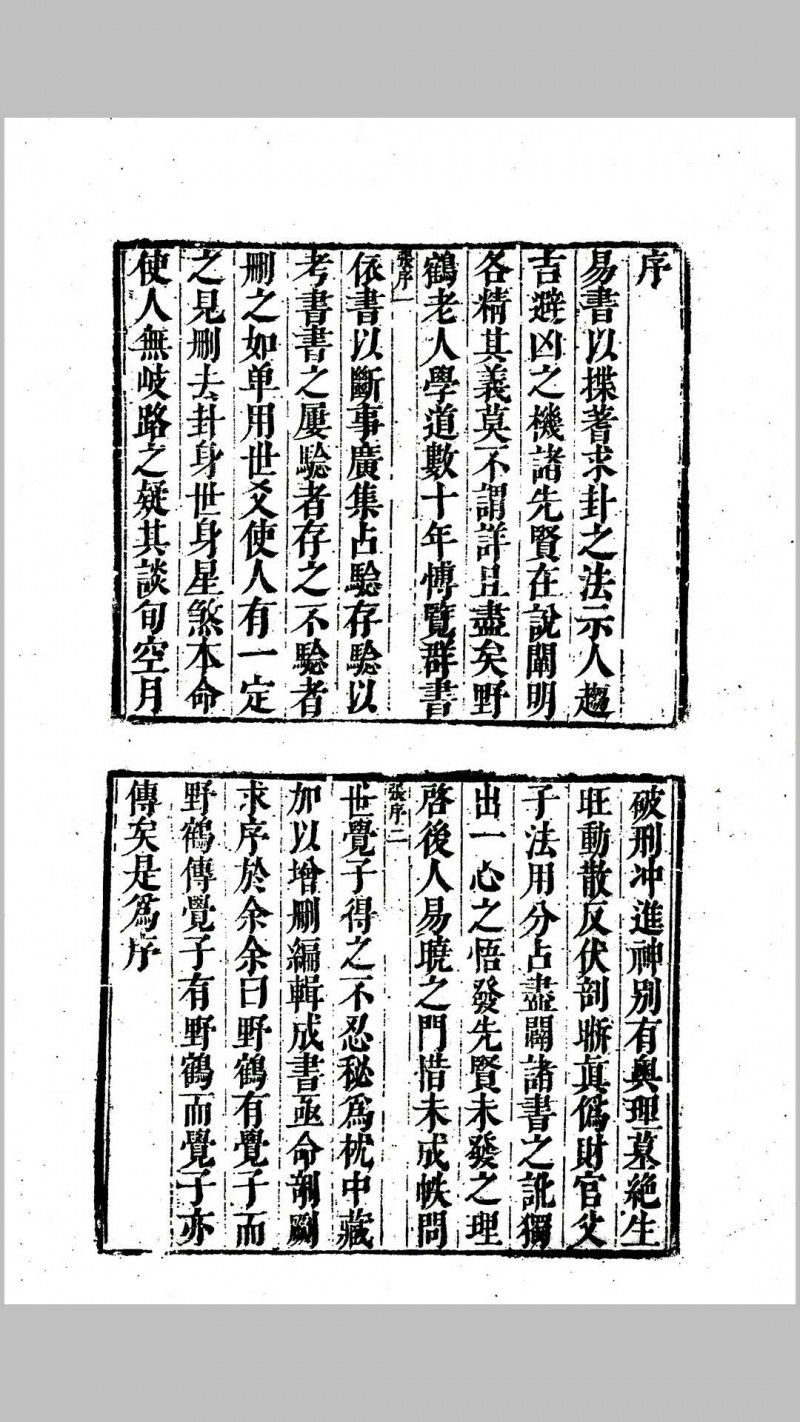 序
易書以揲蓍求卦之法示人趨
吉避凶之機諸先賢在說闡明
各精其義莫不謂詳且盡矣野
鶴老人學道數十年博覽群書
張序一
依書以斷事廣集占驗存驗以
考書書之屢驗者存之不驗者
刪之如单用世爻使人有一定
之見刪去卦身世身星煞本命
使人無岐路之疑其談旬空月
破刑冲進神别有奥理墓絶生
旺動散反伏剖晰眞僞財官父
子法用分占盡闢諸書之訛獨
出一心之悟發先賢未發之理
啓後人易曉之門惜未成帙問
張序二
世覺子得之不忍秘爲枕中藏
加以增刪編輯成書亟命剞劂
求序於余余曰野鶴有覺子而
野鶴傳覺子有野鶴而覺子亦
傳矣是爲序